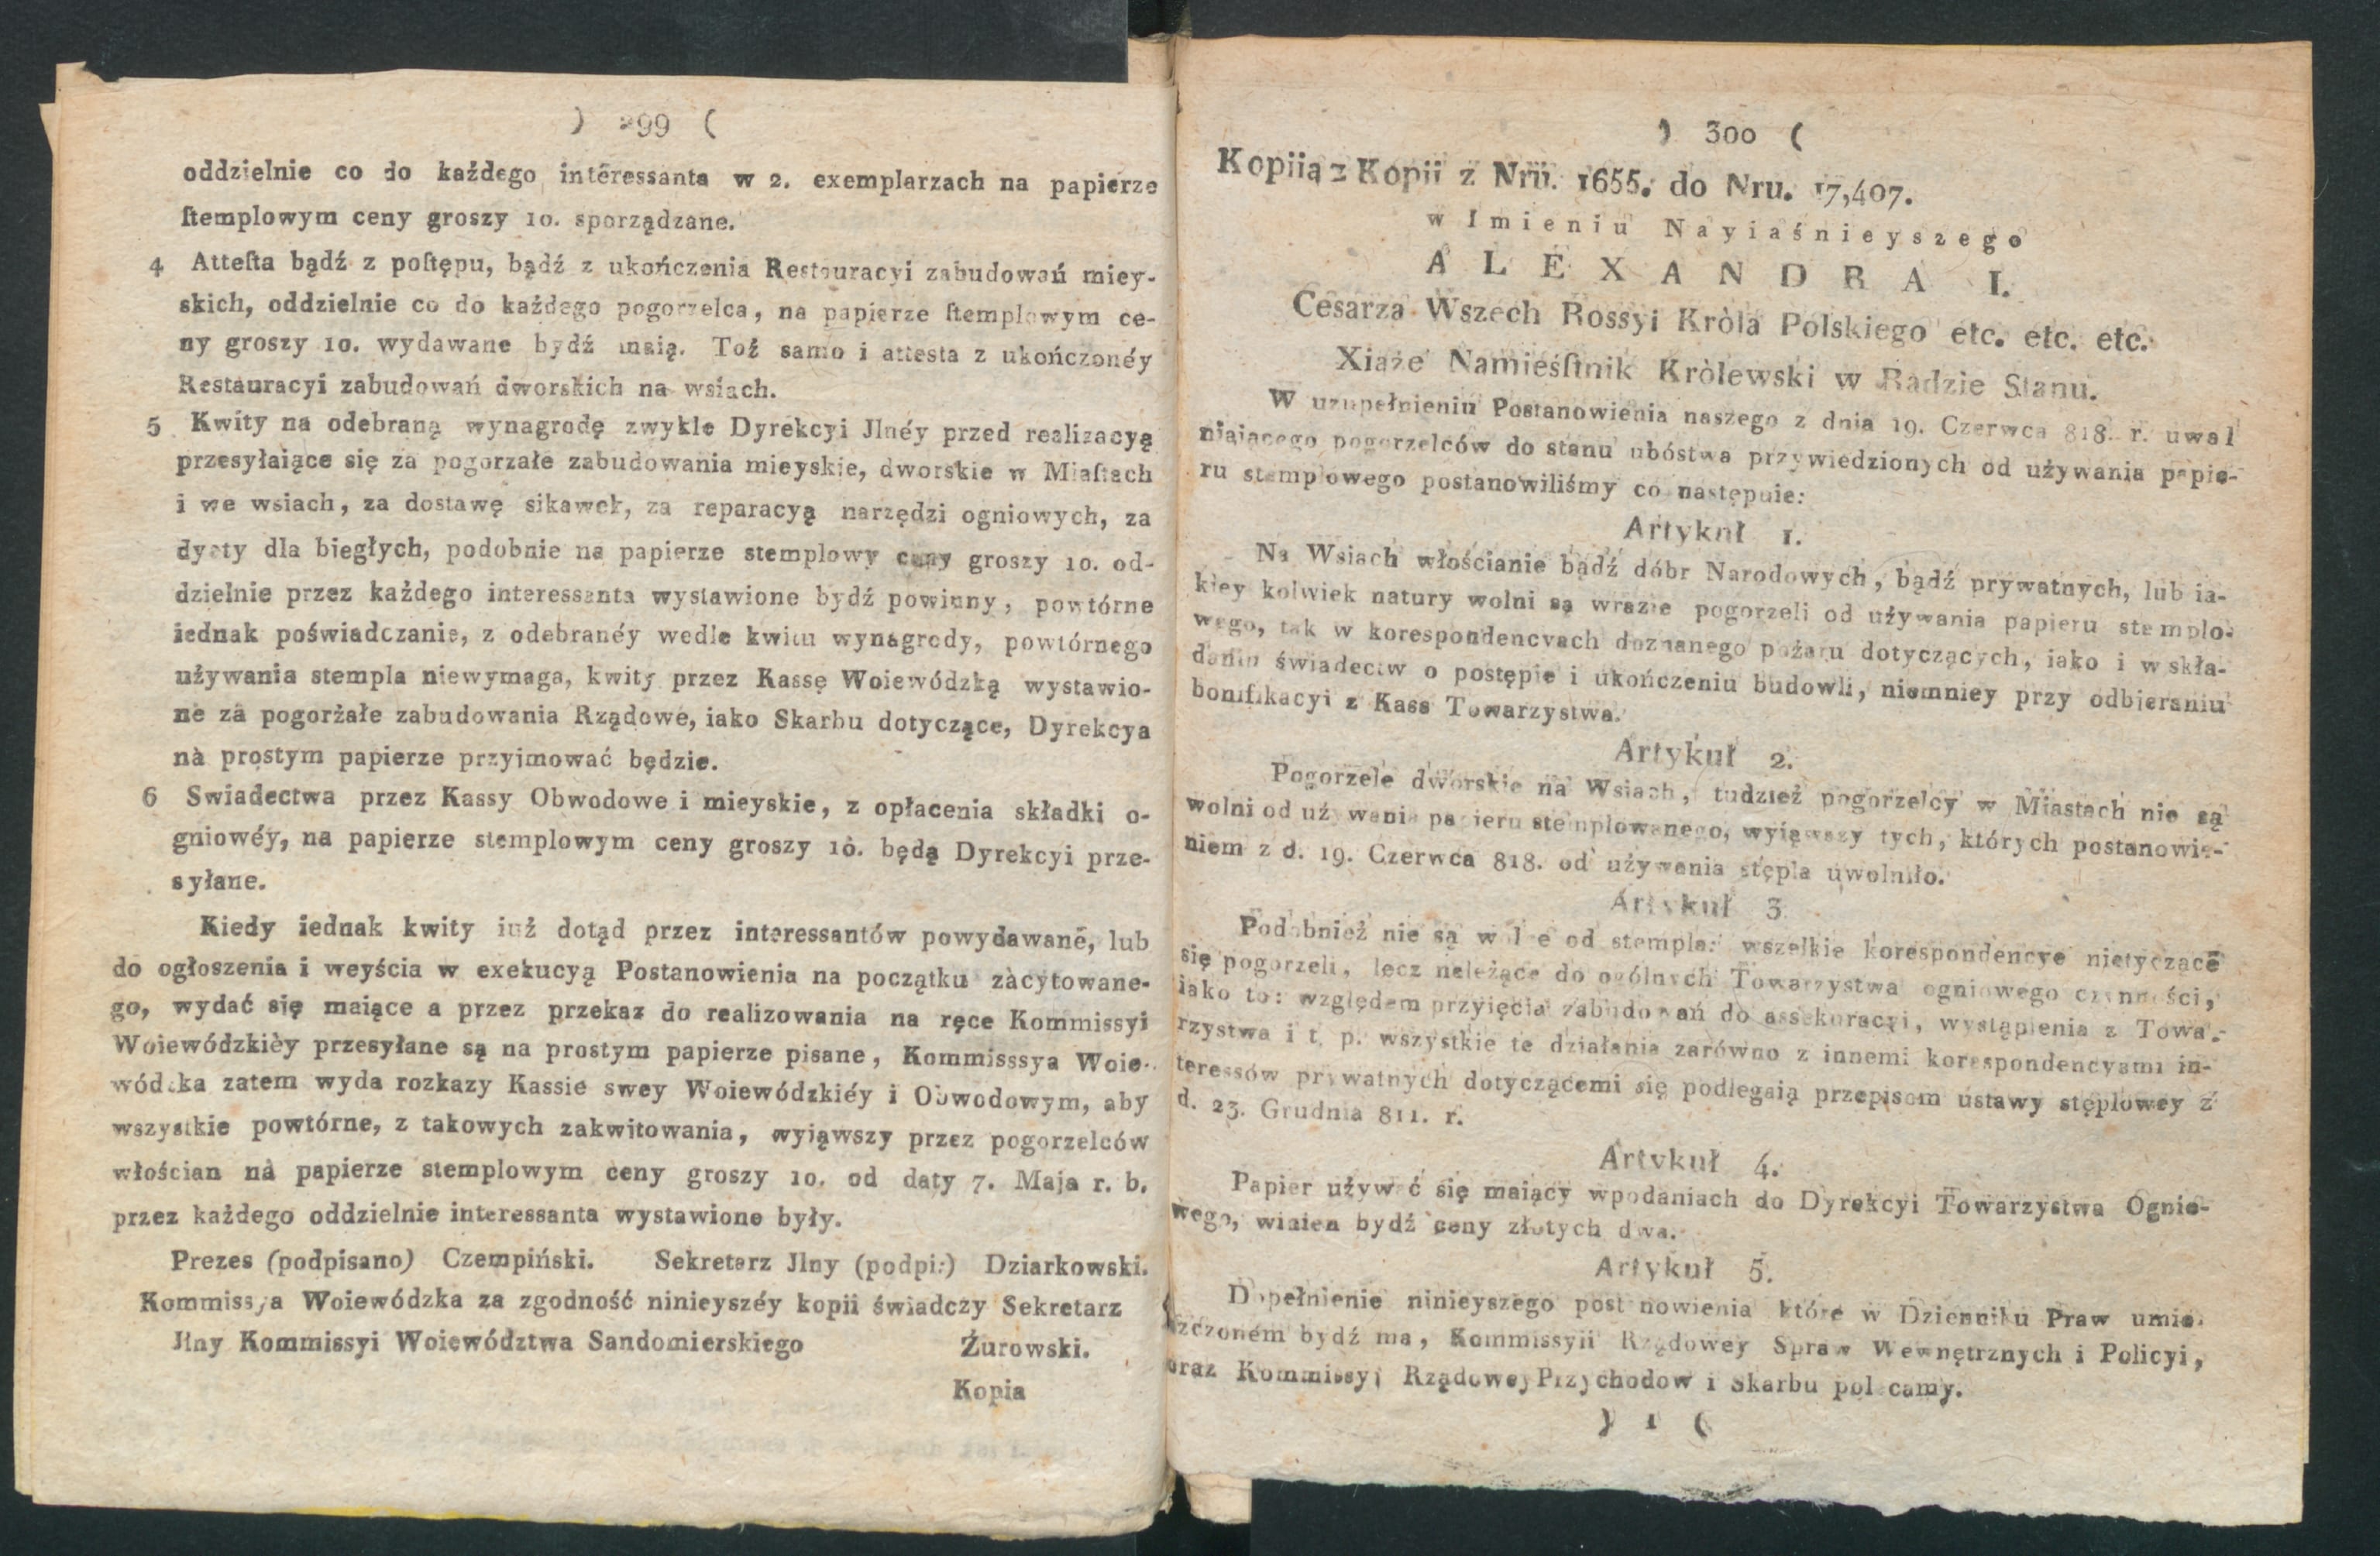 ) 299 (
oddzielnie co do każdego interessanta w 2. exemplarzach na papierze
ſtemplowym ceny groszy 10. sporządzane.
4 Atteſta bądź z poſtępu, bądź z ukończenia Restauracyi zabudowań miey-
skich, oddzielnie co do każdego pogorzelca, na papierze ſtemplowym ce-
ny groszy 10. wydawane bydź maią. Toż samo i attesta z ukończonéy
Restauracyi zabudowań dworskich na wsiach.
5 Kwity na odebraną wynagrodę zwykle Dyrekcyi Jlnéy przed realizacyą
przesyłaiące się za pogorzałe zabudowania mieyskie, dworskie w Miaſtach
i we wsiach, za dostawę sikawek, za reparacyą narzędzi ogniowych, za
dyety dla biegłych, podobnie na papierze stemplowy ceny groszy 10. od-
dzielnie przez każdego interessanta wystawione bydź powinny, powtórne
iednak poświadczanie, z odebranéy wedle kwitu wynagrody, powtórnego
używania stempla niewymaga, kwity przez Kassę Woiewódzką wystawio-
ne za pogorżałe zabudowania Rządowe, iako Skarbu dotyczące, Dyrekcya
nà prostym papierze przyjmować będzie.
6 Swiadectwa przez Kassy Obwodowe i mieyskie, z opłacenia składki o-
gniowéy, na papierze stemplowym ceny groszy 10. będą Dyrekcyi prze-
syłane.
Kiedy iednak kwity iuż dotąd przez interessantów powydawanė, lub
do ogłoszenia i weyścia w exekucyą Postanowienia na początku zàcytowane-
go, wydać się maiące a przez przekaz do realizowania na ręce Kommissyi
Woiewódzkièy przesyłane są na prostym papierze pisane, Kommisssya Woie-
wódzka zatem wyda rozkazy Kassie swey Woiewódzkiéy i Obwodowym, aby
wszystkie powtórne, z takowych zakwitowania, wyjąwszy przez pogorzelców
włościan nà papierze stemplowym ceny groszy 10. od daty 7. Maja r. b.
przez każdego oddzielnie interessanta wystawione były.
Prezes (podpisano) Czempiński. Sekretarz Jlny (podpi:) Dziarkowski.
Kommissya Woiewódzka za zgodność ninieyszéy kopii świadczy Sekretarz
Jlny Kommissyi Woiewództwa Sandomierskiego Żurowski.
Kopia
) 300 (
Kopiią z Kopii z Nru. 1655. do Nru. 17,407.
w Imieniu Nayiaśnieyszego
ALEXANDRA I.
Cesarza Wszech Rossyi Króla Polskiego etc. etc. etc.
Xiąże Namieśſtnik Królewski w Radzie Stanu.
W uzupełnieniu Postanowienia naszego z dnia 19. Czerwca 818. r. uwal
niaiącego pogorzelców do stanu ubóstwa przywiedzionych od używania papie-
ru stemplowego postanowiliśmy co następuie:
Artykuł 1.
Na Wsiach włościanie bądź dóbr Narodowych, bądź prywatnych, lub ia-
kiey kolwiek natury wolni są wrazie pogorzeli od używania papieru stemplo-
wego, tak w korespondencyach doznanego pożaru dotyczących, iako i w skła-
daniu świadectw o postępie i ukończeniu budowli, niemniey przy odbieraniu
bonifikacyi z Kass Towarzystwa.
Artykuł 2.
Pogorzele dworskie na Wsiach, tudzież pogorzelcy w Miastach nie są
wolni od używania papieru stemplowanego, wyiąwszy tych, których postanowie-
niem z d. 19. Czerwca 818. od używania stępla uwolniło.
Artykuł 3
Podobnież nie są wolne od stempla: wszelkie korespondencye nietyczące
się pogorzeli, lecz należące do ogólnych Towarzystwa ogniowego czynności,
iako to: względem przyięcia zabudowań do assekuracyi, wystąpienia z Towa-
rzystwa i t. p. wszystkie te działania zarówno z innemi korespondencyami in-
teressów prywatnych dotyczącemi się podlegaią przepisom ustawy stęplowey z
d. 23. Grudnia 811. r.
Artykuł 4.
Papier używać się maiący wpodaniach do Dyrekcyi Towarzystwa Ognio-
wego, winien bydź ceny złotych dwa.
Artykuł 5.
Dopełnienie ninieyszego postanowienia które w Dzienniku Praw umie-
szczoném bydź ma, Kommissyii Rządowey Spraw Wewnętrznych i Policyi,
oraz Kommissyi Rządowey Przychodow i Skarbu polecamy.
) 1 (